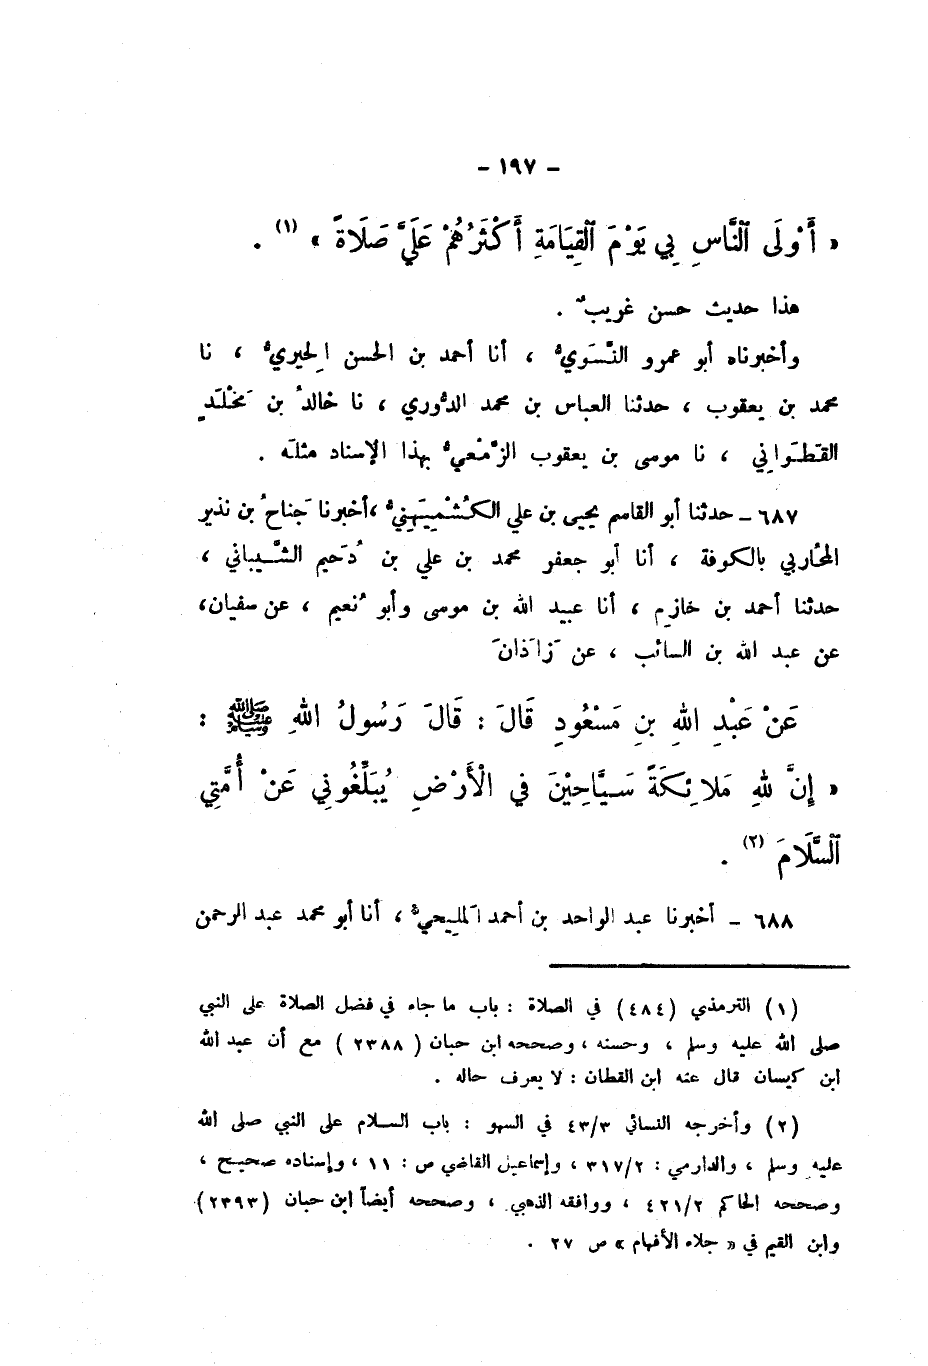 - ١٩٧ -
« أَوْلَى ٱلنَّاسِ بِي يَوْمَ ٱلْقِيَامَةِ أَكْثَرُهُمْ عَلَيَّ صَلَاةً » (١) .
هذا حديث حسن غريبٌ .
وأخبرناه أبو عمرو النَّسَويُّ ، أنا أحمد بن الحسن الحِيريُّ ، نا
محمد بن يعقوب ، حدثنا العباس بن محمد الدُّوري ، نا خالدُ بن مَخْلَدٍ
القَطَوانِي ، نا موسى بن يعقوب الزَّمْعيُّ بهذا الإسناد مثلَه .
٦٨٧ - حدثنا أبو القاسم يحيى بن علي الكُشْمِيْهَنيُّ ، أخبرنا جَناحُ بن نذير
المحُاربي بالكوفة ، أنا أبو جعفر محمد بن علي بن دُحَيم الشَّيباني ،
حدثنا أحمد بن خازِم ، أنا عبيد الله بن موسى وأبو نُعيم ، عن سفيان ،
عن عبد الله بن السائب ، عن زَاذانَ
عَنْ عَبْدِ اللهِ بنِ مَسْعُودٍ قَالَ : قَالَ رَسُولُ اللهِ ﷺ :
« إِنَّ للهِ مَلائِكَةً سَيَّاحِيْنَ في الْأَرْضِ يُبَلِّغُونِي عَنْ أُمَّتِي
ٱلسَّلَامَ (٢) .
٦٨٨ - أخبرنا عبد الواحد بن أحمد المَلِيحيُّ ، أنا أبو محمد عبد الرحمن
(١) الترمذي (٤٨٤) في الصلاة : باب ما جاء في فضل الصلاة على النبي
صلى الله عليه وسلم ، وحسنه ، وصححه ابن حبان ( ٢٣٨٨ ) مع أن عبد الله
ابن كيسان قال عنه ابن القطان : لا يعرف حاله .
(٢) وأخرجه النسائي ٤٣/٣ في السهو : باب السلام على النبي صلى الله
عليه وسلم ، والدارمي : ٣١٧/٢ ، وإسماعيل القاضي ص : ١١ ، وإسناده صحيح ،
وصححه الحاكم ٤٢١/٢ ، ووافقه الذهبي ، وصححه أيضاً ابن حبان (٢٣٩٣)
وابن القيم في « جلاء الأفهام » ص ٢٧ .